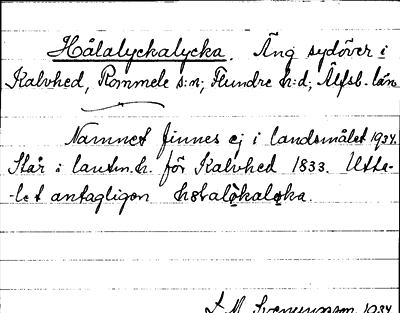 Hålalyckalycka. Äng sydöver i
Kalvhed, Rommele s:n; Flundre h:d; Älfsb. län
Namnet finnes ej i landsmålet 1934.
Står i lantm.h. för Kalvhed 1833. Utta-
-let antagligen
1934